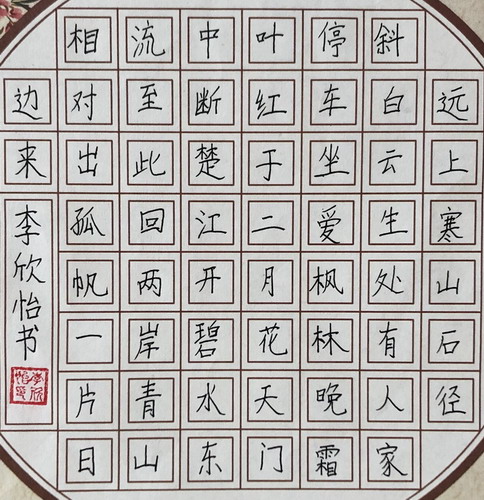 远上寒山石径
斜白云生处有人家
停车坐爱枫林晚霜
叶红于二月花天门
中断楚江开碧水东
流至此回两岸青山
相对出孤帆一片日
边来
李欣怡书
李欣怡印